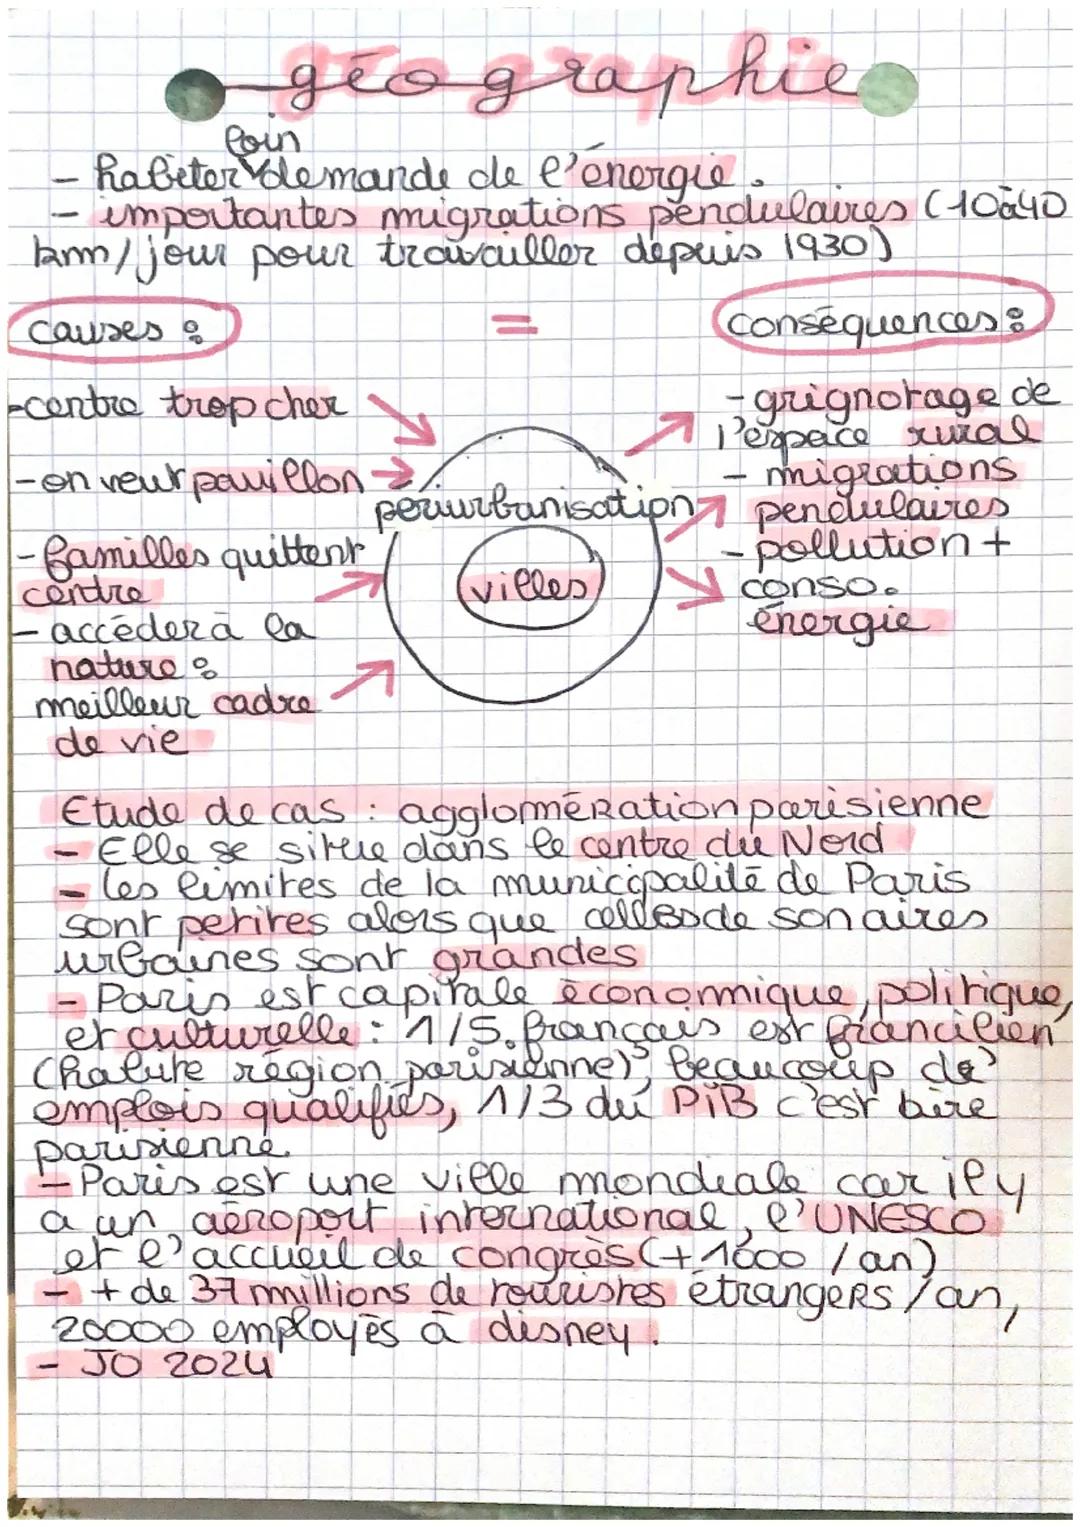 géographie
loin
- habiter demande de l'énergie.
- importantes migrations pendulaires (10à40
km/jour pour travailler depuis 1930)
causes :
=
conséquences :
-centre trop cher
-on veut pavillon
-familles quittent
centre
- accéder à la
nature :
meilleur cadre
de vie
périurbanisation
villes
- grignotage de
l'espace rural
- migrations
pendulaires
- pollution +
conso.
énergie
Etude de cas : agglomération parisienne
- Elle se situe dans le centre du Nord
- les limites de la municipalité de Paris
sont petites alors que celles de son aires
urbaines sont grandes
- Paris est capitale économique, politique,
et culturelle : 1/5. français est francilien
(habite région parisienne), beaucoup de
emplois qualifiés, 1/3 du PiB c'est
parisienne.
- Paris est une ville mondiale car il y
a un aéroport international, l'UNESCO
et l'accueil de congrès (+1000 /an)
- + de 37 millions de touristes étrangers /an,
20000 employés à disney.
- JO 2024